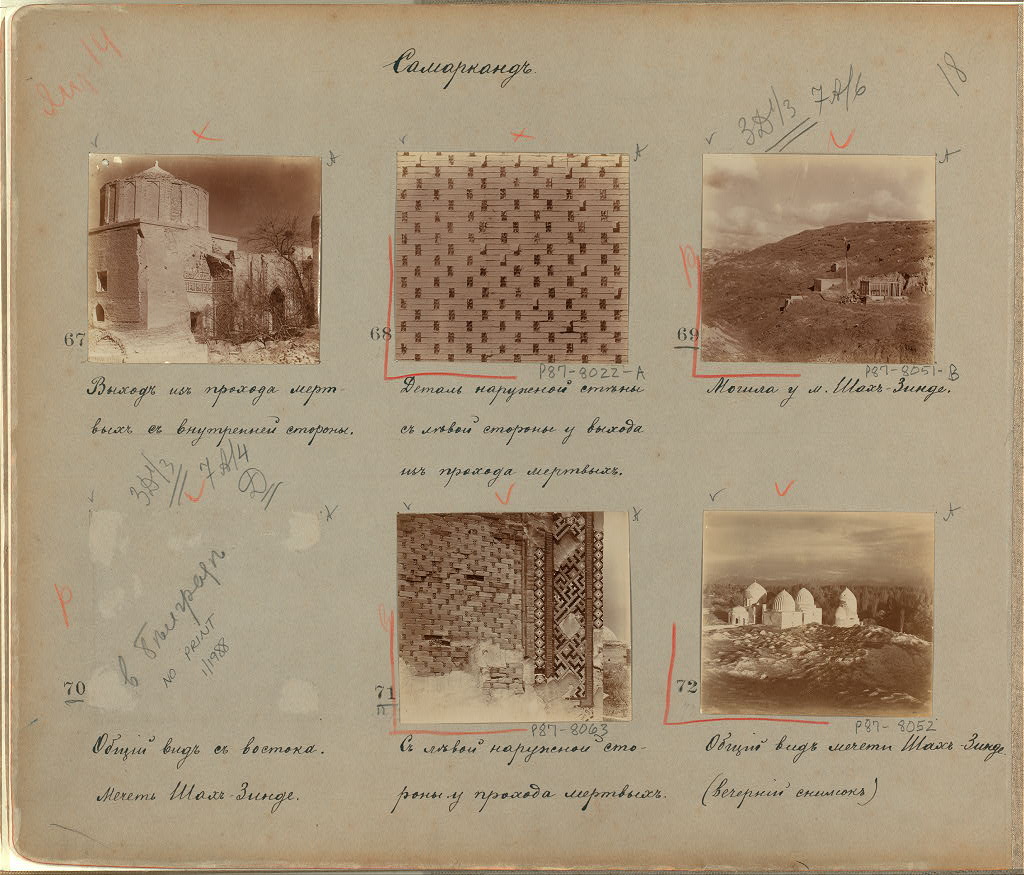 Самаркандъ.
18
3Д1/3 7А/6
А
А
А
67
68
69
P87-8022-A
P87-8051-B
Выходъ изъ прохода мерт-
выхъ съ внутренней стороны.
Деталь наружной стѣны
съ лѣвой стороны у выхода
изъ прохода мертвыхъ.
Могила у м. Шахъ-Зинде.
3Д1/3 7А/4
Д
А
А
А
р
в
NO PRINT
1/1988
70
71
72
P87-8063
P87-8052
Общій видъ съ востока.
Мечеть Шахъ-Зинде.
Съ лѣвой наружной сто-
роны у прохода мертвыхъ.
Общій видъ мечети Шахъ-Зинде
(вечерній снимокъ)